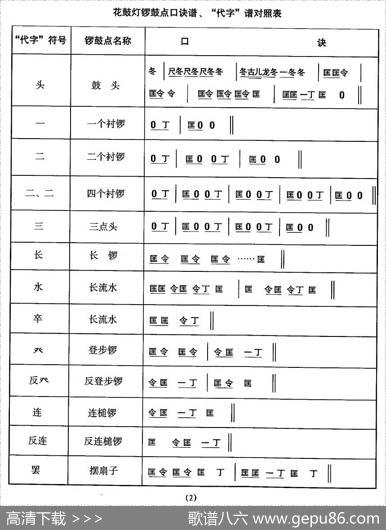 花鼓灯锣鼓点口诀谱、“代字”谱对照表
“代字”符号 锣鼓点名称 口 诀
头 鼓 头 冬 | 尺冬尺冬尺冬冬 | 冬古儿龙冬一冬冬 | 匡匡令
匡令 令 | 匡令 匡令匡令 匡 | 匡匡一丁 匡 0 ‖
一 一个衬锣 0 丁 | 匡 0 0 ‖
二 二个衬锣 0 丁 | 匡 0 0 丁 | 匡 0 0 ‖
二、二 四个衬锣 0 丁 | 匡 0 0 丁 | 匡 0 0 丁 | 匡 0 0 丁 | 匡 0 0 ‖
三 三点头 0 丁 | 匡 0 0 丁 | 匡 0 0 丁 | 匡 0 0 ‖
长 长 锣 匡 令 匡 令 匡 令 ……匡 ‖
水 长流水 匡匡 令匡 令丁 匡 | 匡 令匡 令丁 匡 ‖
卒 长流水 匡 匡 令 丁 ‖
登步锣 匡 令 匡 令 | 令 匡 一 丁 ‖
反 反登步锣 令 匡 一 丁 | 匡 令 匡 ‖
连 连槌锣 令 匡 一 丁 匡 ‖
反连 反连槌锣 匡 令 匡 一 丁 ‖
罢 摆扇子 匡 令 匡 令 匡 丁 | 匡 匡 一 丁 匡 ‖
(2)
高清下载 >>> 歌谱八六 www.gepu86.com